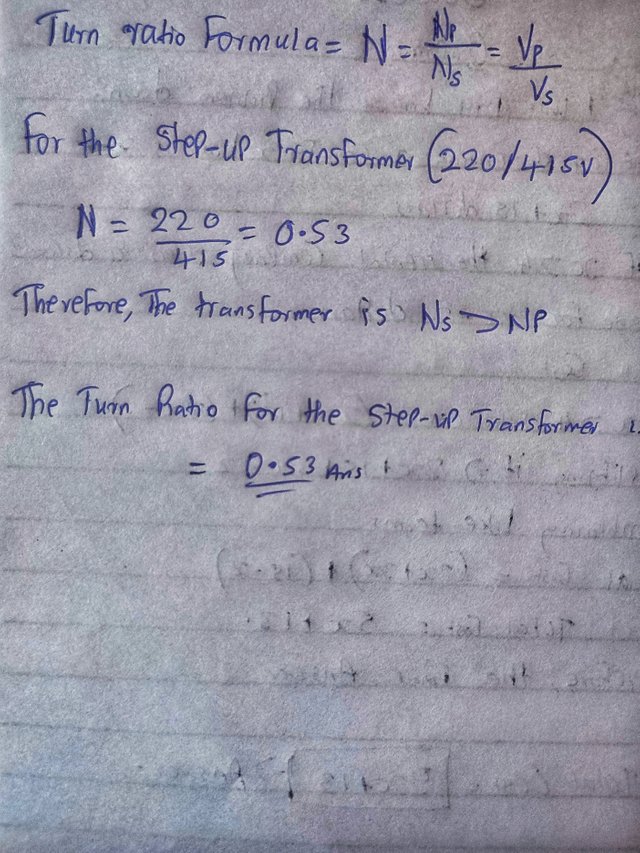 Turn ratio Formula = N = Np/Ns = Vp/Vs
For the Step-up Transformer (220/415V)
N = 220/415 = 0.53
Therefore, The transformer is Ns > NP
The Turn Ratio for the Step-up Transformer i
= 0.53 Ans